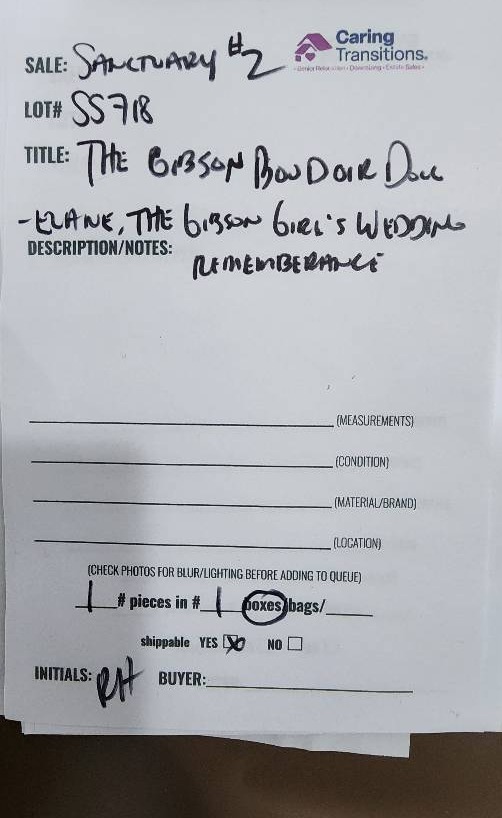 Caring
Transitions®
Senior Relocation • Downsizing • Estate Sales
SALE: SANCTUARY #2
LOT# SS718
TITLE: THE GIBSON BOUDOIR DOLL
-ELAINE, THE GIBSON GIRL'S WEDDING
DESCRIPTION/NOTES:
REMEMBERANCE
(MEASUREMENTS)
(CONDITION)
(MATERIAL/BRAND)
(LOCATION)
(CHECK PHOTOS FOR BLUR/LIGHTING BEFORE ADDING TO QUEUE)
1 # pieces in # 1 boxes/bags/
shippable YES ☒ NO ☐
INITIALS: RH BUYER: